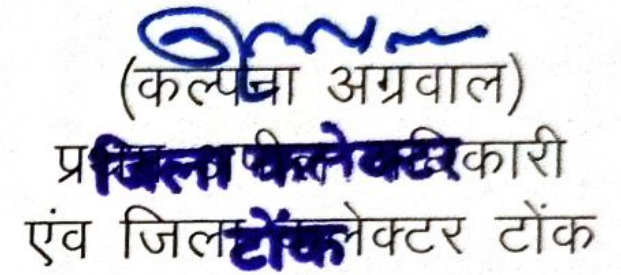 (कल्पना अग्रवाल)
जिला कलेक्टर
एंव जिला कलेक्टर टोंक
टोंक